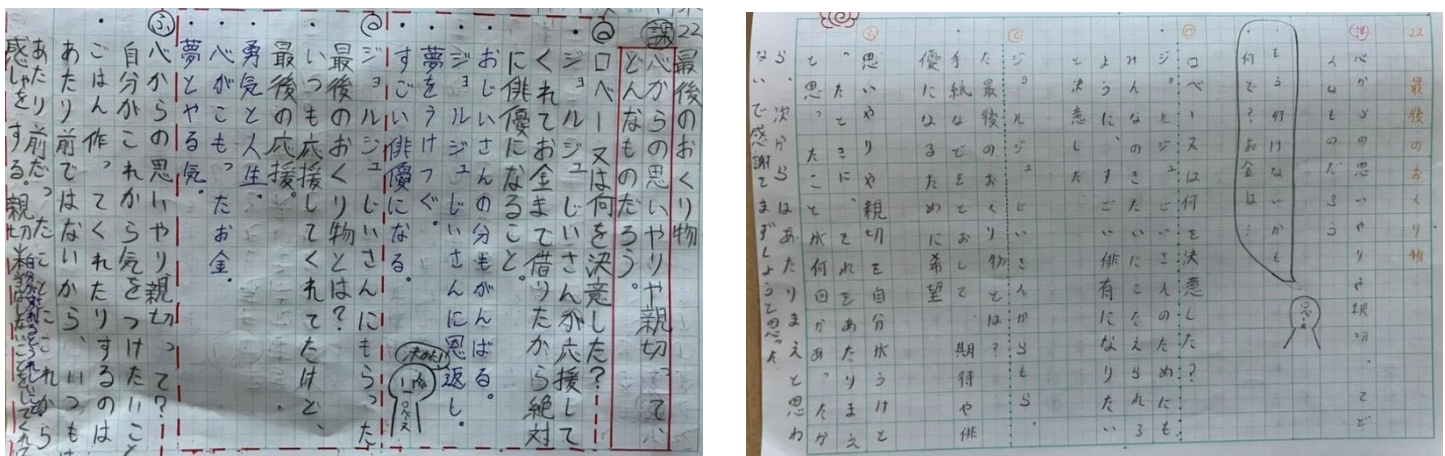 22
最後のおくり物
課 心からの思いやりや親切って、
どんなものだろう。
ロベーヌは何を決意した?
ジョルジュじいさんが応援して
くれてお金まで借りたから絶対
に俳優になること。
おじいさんの分もがんばる。
ジョルジュじいさんに恩返し。
夢をうけつぐ。
すごい俳優になる。
ジョルジュじいさんにもらった
最後のおくり物とは?
いつも応援してくれてたけど、
最後の応援。
勇気と人生。
心がこもったお金。
夢とやる気。
ふ 心からの思いやり親切って?
自分がこれから気をつけたいこと
ごはん作ってくれたりするのは
あたり前ではないから、いつも
あたり前だったことにこれから
感しゃをする。親切
22
最後のおくり物
課 心からの思いやりや親切ってど
んなものだろう
もう行けないかも
何で?お金は…
ロベーヌは何を決意した?
ジョルジュじいさんのためにも、
みんなのきたいにこたえられる
ように、すごい俳有になりたい
と決意した
ジョルジュじいさんからもらっ
た最後のおくり物とは?
手紙などをとおして期待や俳
優になるために希望
思いやりや親切を自分が、うけと
ったときに、それをあたりまえ
と思ったことが何回かあったか
ら、次からはあたりまえと思わ
ないで感謝をまずしようと思った